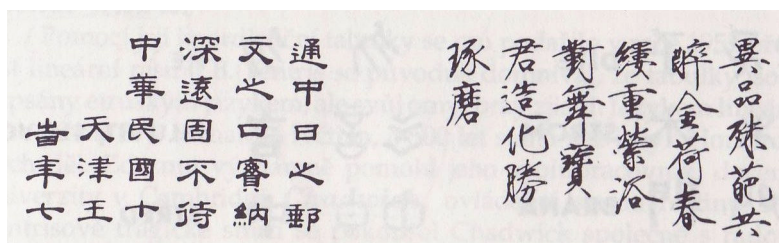 異品殊葩共
晬金荷春
縷重縈浴
對舞寶
君造化勝
琢磨
通中日之郵
文之曰賓納
深遠固不待
中華民國十
天津王
七